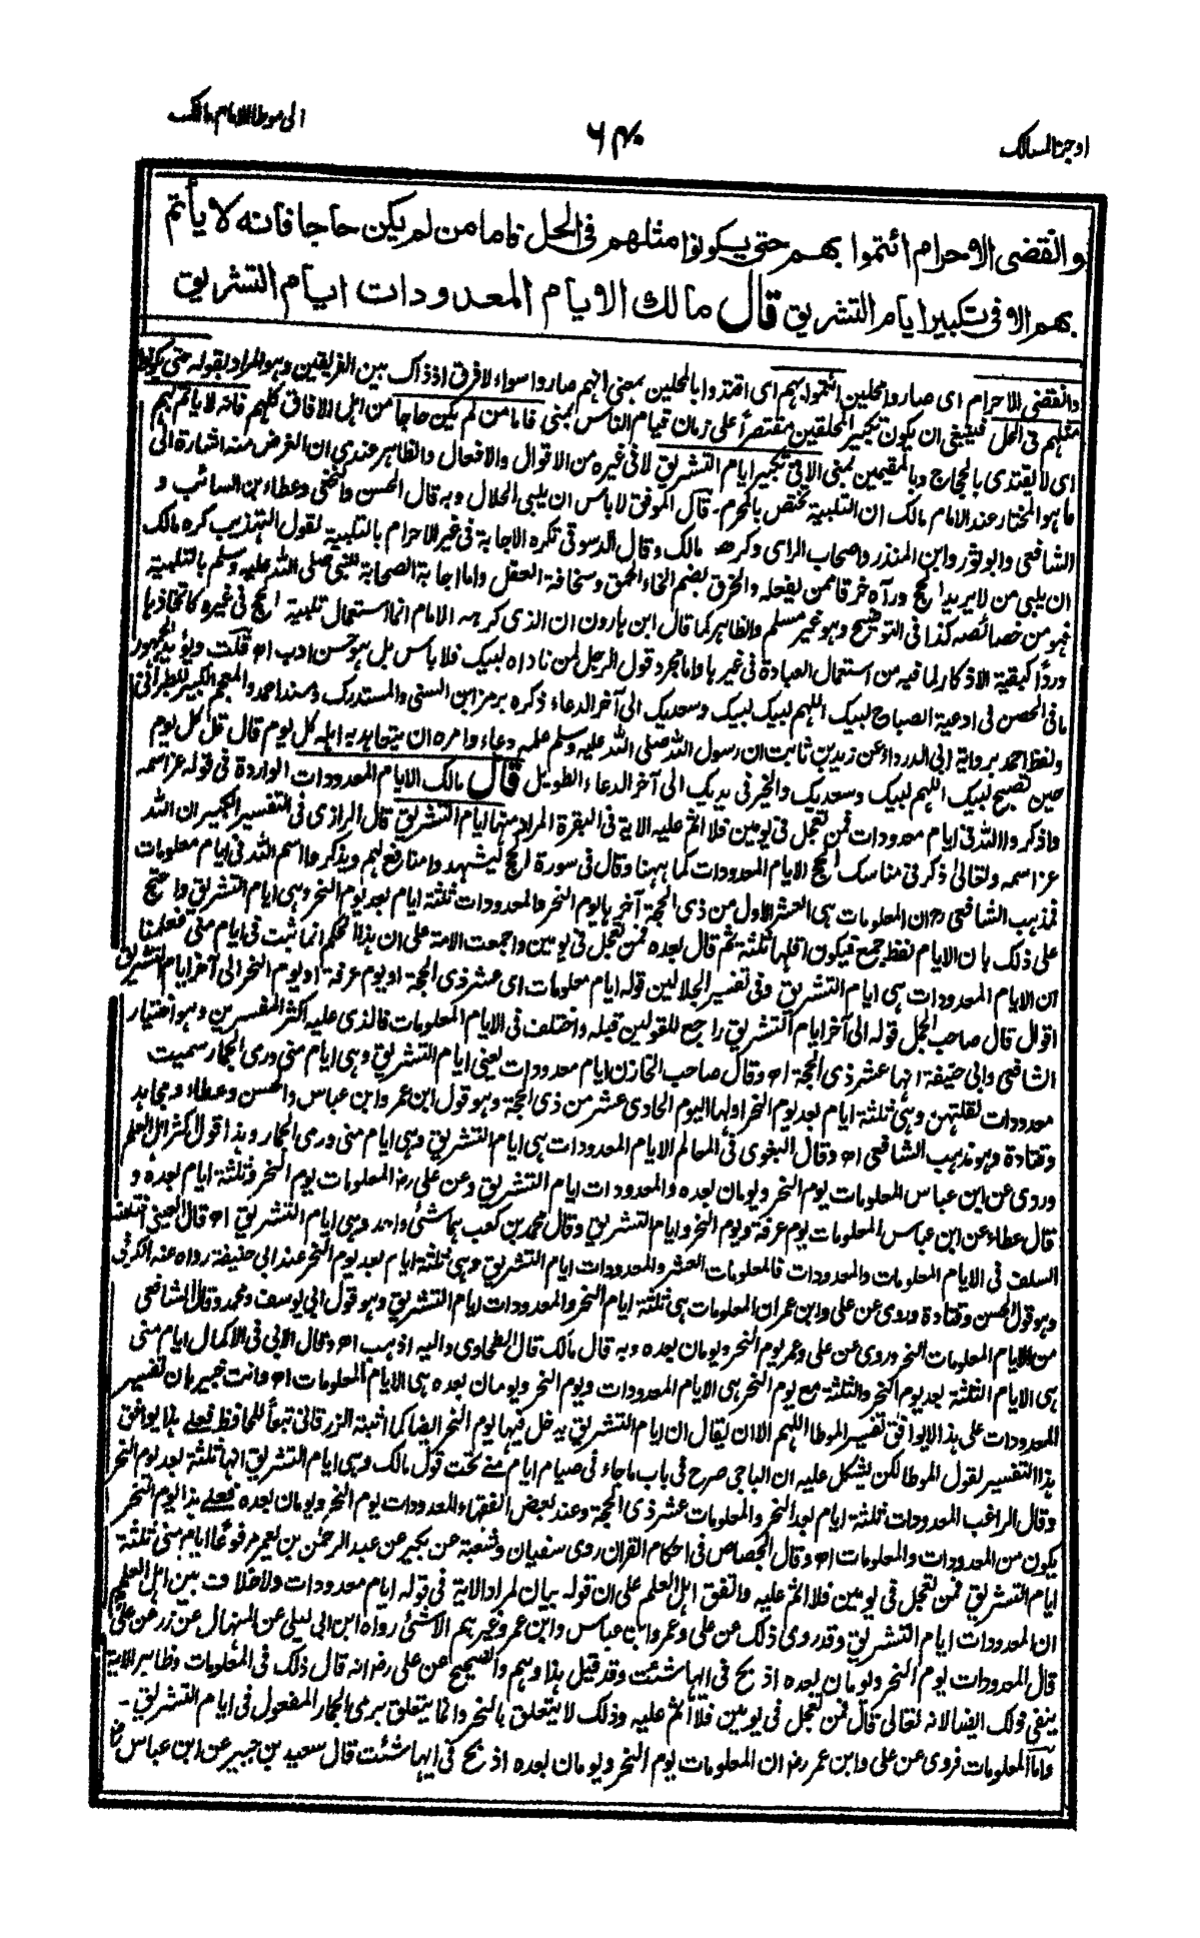 اوجز المسالک
۶۴۰
الی موطا الامام مالک
وانقضى الاحرام ائتموا بهم حتى يكونوا مثلهم فى الحل فاما من لم يكن حاجا فانه لا يأتم
بهم الا فى تكبير ايام التشريق قال مالك الايام المعدودات ايام التشريق
وانقضى الاحرام اى صاروا محلين ائتموا بهم اى اقتدوا بالمحلين بمعنى انهم صاروا سواء لا فرق اذ ذاك بين الفريقين وهو المراد بقوله حتى يكونوا
مثلهم فى الحل فينبغى ان يكون تكبير المحلقين مقتصرا على زمان قيام الناس بمنى فاما من لم يكن حاجا من اهل الآفاق كلهم فانه لا ياتم بهم
اى لا يقتدى بالحجاج وبالمقيمين بمنى الا فى تكبير ايام التشريق لا فى غيره من الاقوال والافعال والظاهر عندى ان الغرض منه اشارة الى
ما هو المختار عند الامام مالك ان التلبية تختص بالمحرم۔ قال الموفق لا باس ان يلبى الحلال وبه قال الحسن والنخعى وعطاء بن السائب و
الشافعى وابو ثور وابن المنذر واصحاب الراى وكرهه مالك وقال الدسوقى تكره الاجابة فى غير الاحرام بالتلبية لقول التهذيب كره مالك
ان يلبى من لا يريد الحج ورآه خرقا ممن يفعله والخرق بضم الخاء الحمق وسخافة العقل واما اجابة الصحابة للنبى صلى الله عليه وسلم بالتلبية
فهو من خصائصه كذا فى التوضيح وهو غير مسلم والظاهر كما قال ابن هارون ان الذى كرهه الامام انما استعمال تلبية الحج فى غيره كاتخاذها
وردا كبقية الاذكار لما فيه من استعمال العبادة فى غيرها واما مجرد قول الرجل لمن ناداه لبيك فلا باس بل هو حسن ادب اھ قلت ويؤيد الجمهور
ما فى الحصن فى ادعية الصباح لبيك اللهم لبيك لبيك وسعديك الى آخر الدعاء ذكره برمز ابن السنى والمستدرك ومسند احمد والمعجم الكبير للطبرانى
ولفظ احمد برواية ابى الدرداء عن زيد بن ثابت ان رسول الله صلى الله عليه وسلم علمه دعاء وامره ان يتعاهد به اهله كل يوم قال قل كل يوم
حين تصبح لبيك اللهم لبيك وسعديك والخير فى يديك الى آخر الدعاء الطويل قال مالك الايام المعدودات الواردة فى قوله عز اسمه
واذكروا الله فى ايام معدودات فمن تعجل فى يومين فلا اثم عليه الآية فى البقرة المراد منها ايام التشريق قال الرازى فى التفسير الكبير ان الله
عز اسمه وتعالى ذكر فى مناسك الحج الايام المعدودات كما ههنا وقال فى سورة الحج ليشهدوا منافع لهم ويذكروا اسم الله فى ايام معلومات
فمذهب الشافعى رح ان المعلومات هى العشر الاول من ذى الحجة آخرها يوم النحر والمعدودات ثلثة ايام بعد يوم النحر وهى ايام التشريق واحتج
على ذلك بان الايام لفظ جمع فيكون اقلها ثلثة ثم قال بعده فمن تعجل فى يومين واجمعت الامة على ان هذا الحكم انما ثبت فى ايام منى فعلمنا
ان الايام المعدودات هى ايام التشريق وفى تفسير الجلالين قوله ايام معلومات اى عشر ذى الحجة او يوم عرفة او يوم النحر الى آخر ايام التشريق
اقوال قال صاحب الجمل قوله الى آخر ايام التشريق راجع للقولين قبله واختلف فى الايام المعلومات فالذى عليه اكثر المفسرين وهو اختيار
الشافعى وابى حنيفة انها عشر ذى الحجة اھ وقال صاحب الخازن ايام معدودات يعنى ايام التشريق وهى ايام منى ورمى الجمار سميت
معدودات لقلتهن وهى ثلثة ايام بعد يوم النحر اولها اليوم الحادى عشر من ذى الحجة وهو قول ابن عمر وابن عباس والحسن وعطاء ومجاهد
وقتادة وهو مذهب الشافعى اھ وقال البغوى فى المعالم الايام المعدودات هى ايام التشريق وهى ايام منى ورمى الجمار وهذا قول اكثر اهل العلم
وروى عن ابن عباس المعلومات يوم النحر ويومان بعده والمعدودات ايام التشريق وعن على رض المعلومات يوم النحر وثلثة ايام بعده و
قال عطاء عن ابن عباس المعلومات يوم عرفة ويوم النحر وايام التشريق وقال محمد بن كعب هما شئ واحد وهى ايام التشريق اھ قال العينى اختلف
السلف فى الايام المعلومات والمعدودات فالمعلومات العشر والمعدودات ايام التشريق وهى ثلثة ايام بعد يوم النحر عند ابى حنيفة رواه عنه الكرخى
وهو قول الحسن وقتادة وروى عن على وابن عمر ان المعلومات هى ثلثة ايام النحر والمعدودات ايام التشريق وهو قول ابى يوسف ومحمد وقال الشافعى
من الايام المعلومات النحر وروى عن على وعمر يوم النحر ويومان بعده وبه قال مالك قال الطحاوى واليه اذهب اھ وقال الابى فى الاكمال ايام منى
هى الايام الثلثة بعد يوم النحر والثلثة مع يوم النحر هى الايام المعدودات ويوم النحر ويومان بعده هى الايام المعلومات اھ وانت خبير بان تفسير
المعدودات على هذا لا يوافق تفسير الموطا اللهم الا ان يقال ان ايام التشريق يدخل فيها يوم النحر ايضا كما اثبته الزرقانى تبعا للحافظ فعلى هذا يوافق
هذا التفسير لقول الموطا لكن يشكل عليه ان الباجى صرح فى باب ما جاء فى صيام ايام منى تحت قول مالك وهى ايام التشريق انها ثلثة بعد يوم النحر
وقال الراغب المعدودات ثلثة ايام بعد النحر والمعلومات عشر ذى الحجة وعند بعض الفقهاء المعدودات يوم النحر ويومان بعده فعلى هذا يوم النحر
يكون من المعدودات والمعلومات اھ وقال الجصاص فى احكام القرآن روى سفيان وشعبة عن بكير عن عبد الرحمن بن يعمر مرفوعا ايام منى ثلثة
ايام التشريق فمن تعجل فى يومين فلا اثم عليه واتفق اهل العلم على ان قوله بيان لمراد الآية فى قوله ايام معدودات ولا خلاف بين اهل العلم
ان المعدودات ايام التشريق وقد روى ذلك عن على وعمر وابن عباس وابن عمر وغيرهم الا شئ رواه ابن ابى ليلى عن المنهال عن زر عن على
قال المعدودات يوم النحر ويومان بعده اذبح فى ايها شئت وقد قيل هذا وهم والصحيح عن على رض انه قال ذلك فى المعلومات وظاهر الآية
ينفى ذلك ايضا لانه تعالى قال فمن تعجل فى يومين فلا اثم عليه وذلك لا يتعلق بالنحر وانما يتعلق برمى الجمار المفعول فى ايام التشريق۔
واما المعلومات فروى عن على وابن عمر رض ان المعلومات يوم النحر ويومان بعده اذبح فى ايها شئت قال سعيد بن جبير عن ابن عباس رض